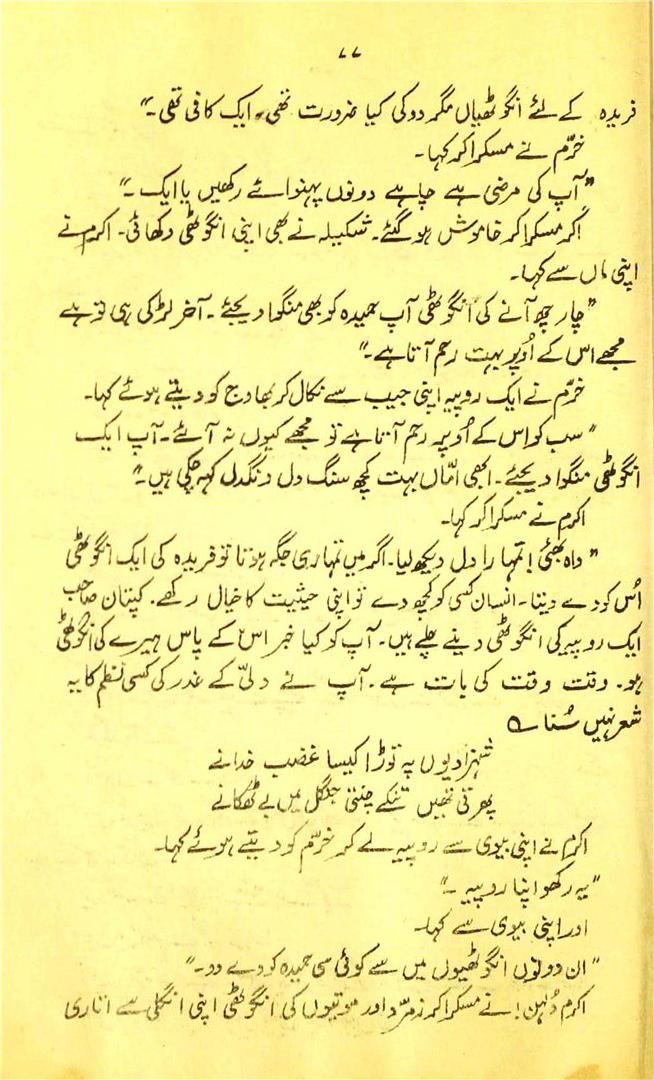 ۷۷
فریدہ کے لئے انگوٹھیاں مگر دو کی کیا ضرورت تھی۔ ایک کافی تھی۔"
خرّم نے مسکرا کر کہا۔
"آپ کی مرضی ہے چاہے دونوں پہنوائے رکھیں یا ایک۔"
اکرم مسکرا کر خاموش ہو گئے۔ شکیلہ نے بھی اپنی انگوٹھی دکھائی۔ اکرم نے
اپنی ماں سے کہا۔
"چار چھ آنے کی انگوٹھی آپ حمیدہ کو بھی منگوا دیجئے۔ آخر لڑکی ہی تو ہے
مجھے اس کے اُوپر بہت رحم آتا ہے۔"
خرّم نے ایک روپیہ اپنی جیب سے نکال کر بھاوج کو دیتے ہوئے کہا۔
"سب کو اس کے اُوپر رحم آتا ہے تو مجھے کیوں نہ آئے۔ آپ ایک
انگوٹھی منگوا دیجئے۔ ابھی امّاں بہت کچھ سنگ دل و تنگدل کہہ چکی ہیں۔"
اکرم نے مسکرا کر کہا۔
"واہ بھئی! تمہارا دل دیکھ لیا۔ اگر میں تمہاری جگہ ہوتا تو فریدہ کی ایک انگوٹھی
اُس کو دے دیتا۔ انسان کسی کو کچھ دے تو اپنی حیثیت کا خیال رکھے۔ کپتان صاحب
ایک روپیہ کی انگوٹھی دینے چلے ہیں۔ آپ کو کیا خبر اس کے پاس ہیرے کی انگوٹھی
ہو۔ وقت وقت کی بات ہے۔ آپ نے دلّی کے غدر کی کسی نظم کا یہ
شعر نہیں سُنا ؎
شہزادیوں پہ توڑا کیسا غضب خدا نے
پھرتی تھیں تنکے چنتی جنگل میں بے ٹھکانے
اکرم نے اپنی بیوی سے روپیہ لے کر خرّم کو دیتے ہوئے کہا۔
"یہ رکھو اپنا روپیہ۔"
اور اپنی بیوی سے کہا۔
"ان دونوں انگوٹھیوں میں سے کوئی سی حمیدہ کو دے دو۔"
اکرم دُلہن! نے مسکرا کر زمرّد اور موتیوں کی انگوٹھی اپنی انگلی سے اتاری